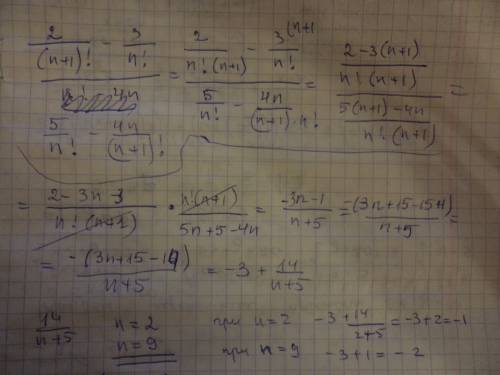 (2/(n+1)! - 3/n!) / (5/n! - 4n/(n+1)!) = (2/(n!(n+1)) - 3^(n+1/n!) / (5/n! - 4n/((n+1)·n!)) = ((2-3(n+1))/(n!(n+1))) / ((5(n+1)-4n)/(n!(n+1))) =
= (2-3n-3)/(n!(n+1)) · n!(n+1)/(5n+5-4n) = (-3n-1)/(n+5) = -(3n+15-15+1)/(n+5) =
= -(3n+15-14)/(n+5) = -3 + 14/(n+5)
14/(n+5) n=2 при n=2 -3+14/(2+5)=-3+2=-1
n=9 при n=9 -3+1=-2